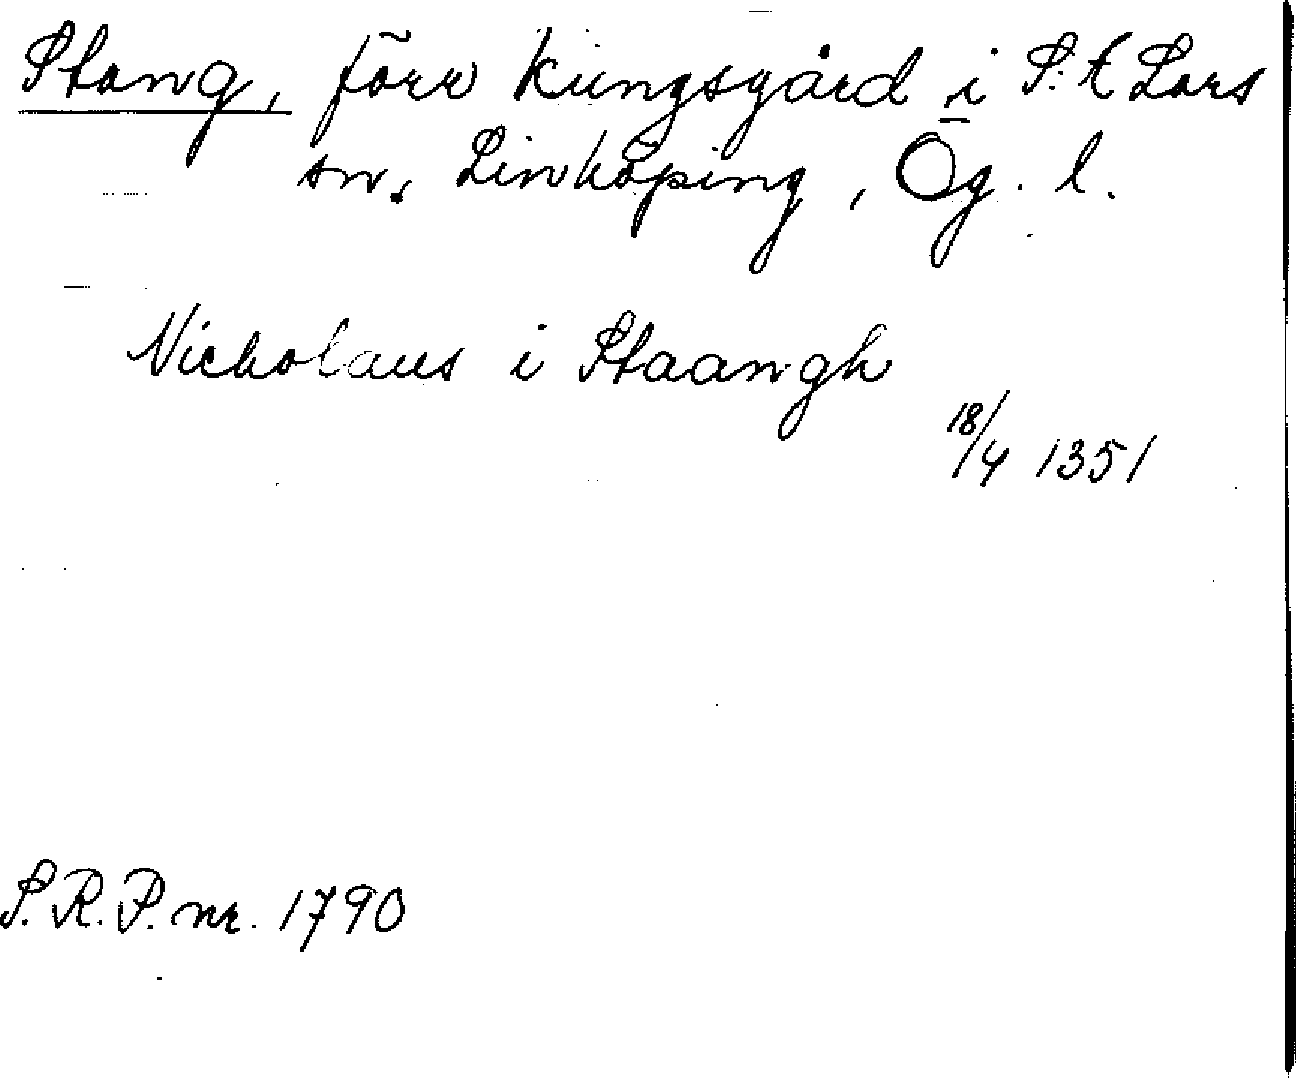 Stang, förr kungsgård i S:t Lars
sn., Linköping, Ög. l.
Nicholaus i Staangh
18/4 1351
S.R.P. nr. 1790